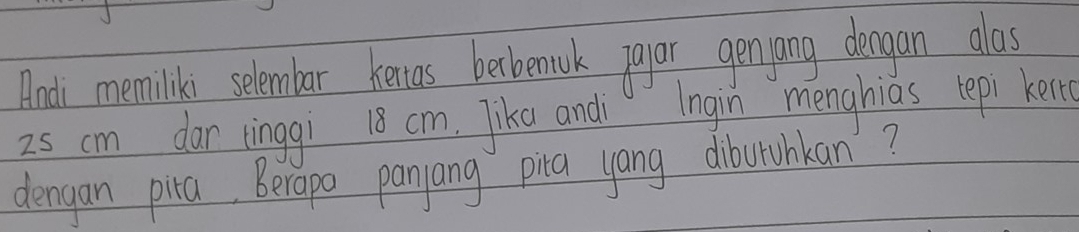 Andi memiliki selembar kertas berbentuk jajar genjang dengan alas
25 cm dar tinggi 18 cm. Jika andi Ingin menghias tepi kerta
dengan pita. Berapa panjang pita yang diburuhkan ?